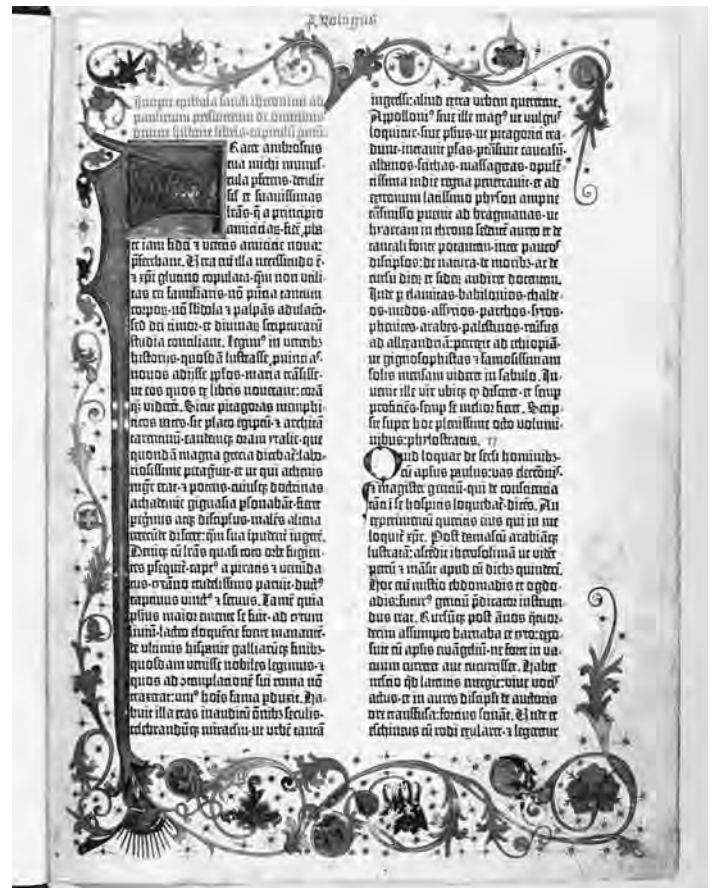 Prologus
Incipit epistola sancti iheronimi ad
paulinum presbiterum de omnibus
divine historie libris·capitulū pmū.
Frater ambrosius
tua michi munus-
cula pferens·detulit
sil' et suavissimas
lrās·q̄ a principio
amicicias·fidē pba-
te iam fidei ⁊ veteris amicicie nova:
pferebant. Vera em̄ illa necessitudo ē·
⁊ xpi glutino copulata·qm̄ non utili-
tas rei familiaris·nō pn̄cia tantum
corpoꝝ·nō sbdola ⁊ palpās adulacō·
sed dei timor·et divinaꝝ scripturarū
studia conciliant. Legim⁹ in veteribꝫ
historijs·quosdā lustrasse pvincias·
novos adijsse pplos·maria trāsisse·
ut eos quos ex libris noverant: corā
qꝫ viderēt. Sicut pitagoras memphi-
ticos vates·sic plato egiptū·⁊ architā
tarentinū·eandemqꝫ oram ytalie·que
quondā magna grecia dicebat̄:labo-
riosissime peragvit·et ut qui athenis
mgr̄ erat·⁊ potens·cuiusqꝫ doctrinas
achademie gignasia psonabāt·fieret
pegrinus atqꝫ discipulus·malēs aliena
verecūde discere:qm̄ sua īpudent̄ ingere̅.
Deniqꝫ cū lrās quasi toto orbe fugien-
tes psequit̄·capt⁹ a piratis ⁊ venūda-
tus·tyranno crudelissimo paruit·duct⁹
captivus vinct⁹ ⁊ servus. Tamē quia
phus maior emente se fuit·ad tytum
livium·lacteo eloquētie fonte manantē·
de ultimis hispanie galliarūqꝫ finibꝫ·
quosdam venisse nobiles legimus·⁊
quos ad ɔtemplacionē sui roma nō
traxerat:uni⁹ hoīs fama pduxit. Ha-
buit illa etas inauditū oībꝫ seculis·
celebrandūqꝫ miraculū·ut urbē tantā
ingressi:aliud extra urbem quererent.
Appolloni⁹ sive ille mag⁹ ut vulgus
loquitur·sive phus·ut pitagorici tra-
dunt·intravit psas·ptrāsivit caucasū·
albanos·scithas·massagetas·opulē-
tissima indie regna penetravit·et ad
extremum latissimo physon ampne
trāsmisso puenit ad bragmanas·ut
hyarcam in throno sedentē aureo et de
tantali fonte potantem·inter paucos
discipulos:de natura·de moribꝫ·ac de
cursu dieꝝ et sideꝝ audiret docentem.
Inde p elamitas·babilonios·chalde-
os·medos·assyrios·parthos·syros·
phenices·arabes·palestinos·revsus
ad allexandriā:perrexit ad ethiopiā·
ut gignosophistas ⁊ famosissimam
solis mensam videret in sabulo. In-
venit ille vir ubiqꝫ qd disceret·et semp
proficiēs·semp se melior fieret. Scrip-
sit super hoc plenissime octo volumi-
nibus:phylostratus.
Quid loquar de secli hominibꝫ·
cū aplus paulus:vas electōnis·
⁊ magister genciū·qui de consciencia
tāti ī se hospitis loquebat̄·dicēs. An
experimentū queritis eius qui in me
loquit̄ xpc. Post damascū arabiāqꝫ
lustratā:ascēdit iherosolimā ut videret
petrū ⁊ māsit apud eū diebꝫ quindeci.
Hoc em̄ misterio ebdomadis et ogdo-
adis:futur⁹ genciū pdicator instruen-
dus erat. Rursūqꝫ post ānos quatuor-
decim assumpto barnaba et tyto:expo-
suit cū aplis evāgeliū·ne forte in va-
cuum curreret aut cucurrisset. Habet
nescio qd latentis energie:vive vocis
actus·et in aures discipli de auctoris
ore transfusa:forcius sonāt. Unde et
eschineus cū rodi exularet·⁊ legeretur